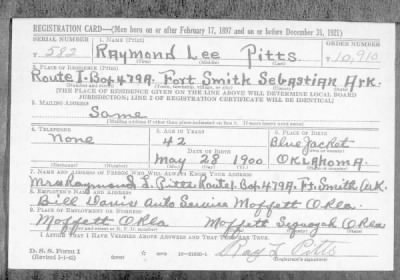 REGISTRATION CARD—(Men born on or after February 17, 1897 and on or before December 31, 1921)
SERIAL NUMBER 1. NAME (Print) ORDER NUMBER
T 582 Raymond Lee Pitts T 10,910
2. PLACE OF RESIDENCE (Print)
Route 1-Box 479A. Fort Smith Sebastian Ark.
(Number and street) (Town, township, village, or city) (County) (State)
[THE PLACE OF RESIDENCE GIVEN ON THE LINE ABOVE WILL DETERMINE LOCAL BOARD
JURISDICTION; LINE 2 OF REGISTRATION CERTIFICATE WILL BE IDENTICAL]
3. MAILING ADDRESS
Same
[Mailing address if other than place indicated on line 2. If same insert word same]
4. TELEPHONE 5. AGE IN YEARS 6. PLACE OF BIRTH
None 42 Blue Jacket
DATE OF BIRTH (Town or county)
May 28 1900 Oklahoma.
(Exchange) (Number) (Mo.) (Day) (Yr.) (State or country)
7. NAME AND ADDRESS OF PERSON WHO WILL ALWAYS KNOW YOUR ADDRESS
Mrs Raymond L Pitts Route 1. Box 479A. Ft. Smith Ark.
8. EMPLOYER'S NAME AND ADDRESS
Bill Davis Auto Service Moffett Okla.
9. PLACE OF EMPLOYMENT OR BUSINESS
Moffett Okla Moffett Sequoyah Okla
(Number and street or R. F. D. number) (Town) (County) (State)
I AFFIRM THAT I HAVE VERIFIED ABOVE ANSWERS AND THAT THEY ARE TRUE.
D. S. S. Form 1
(Revised 1-1-42) (over) Ray L Pitts
(Registrant's signature)